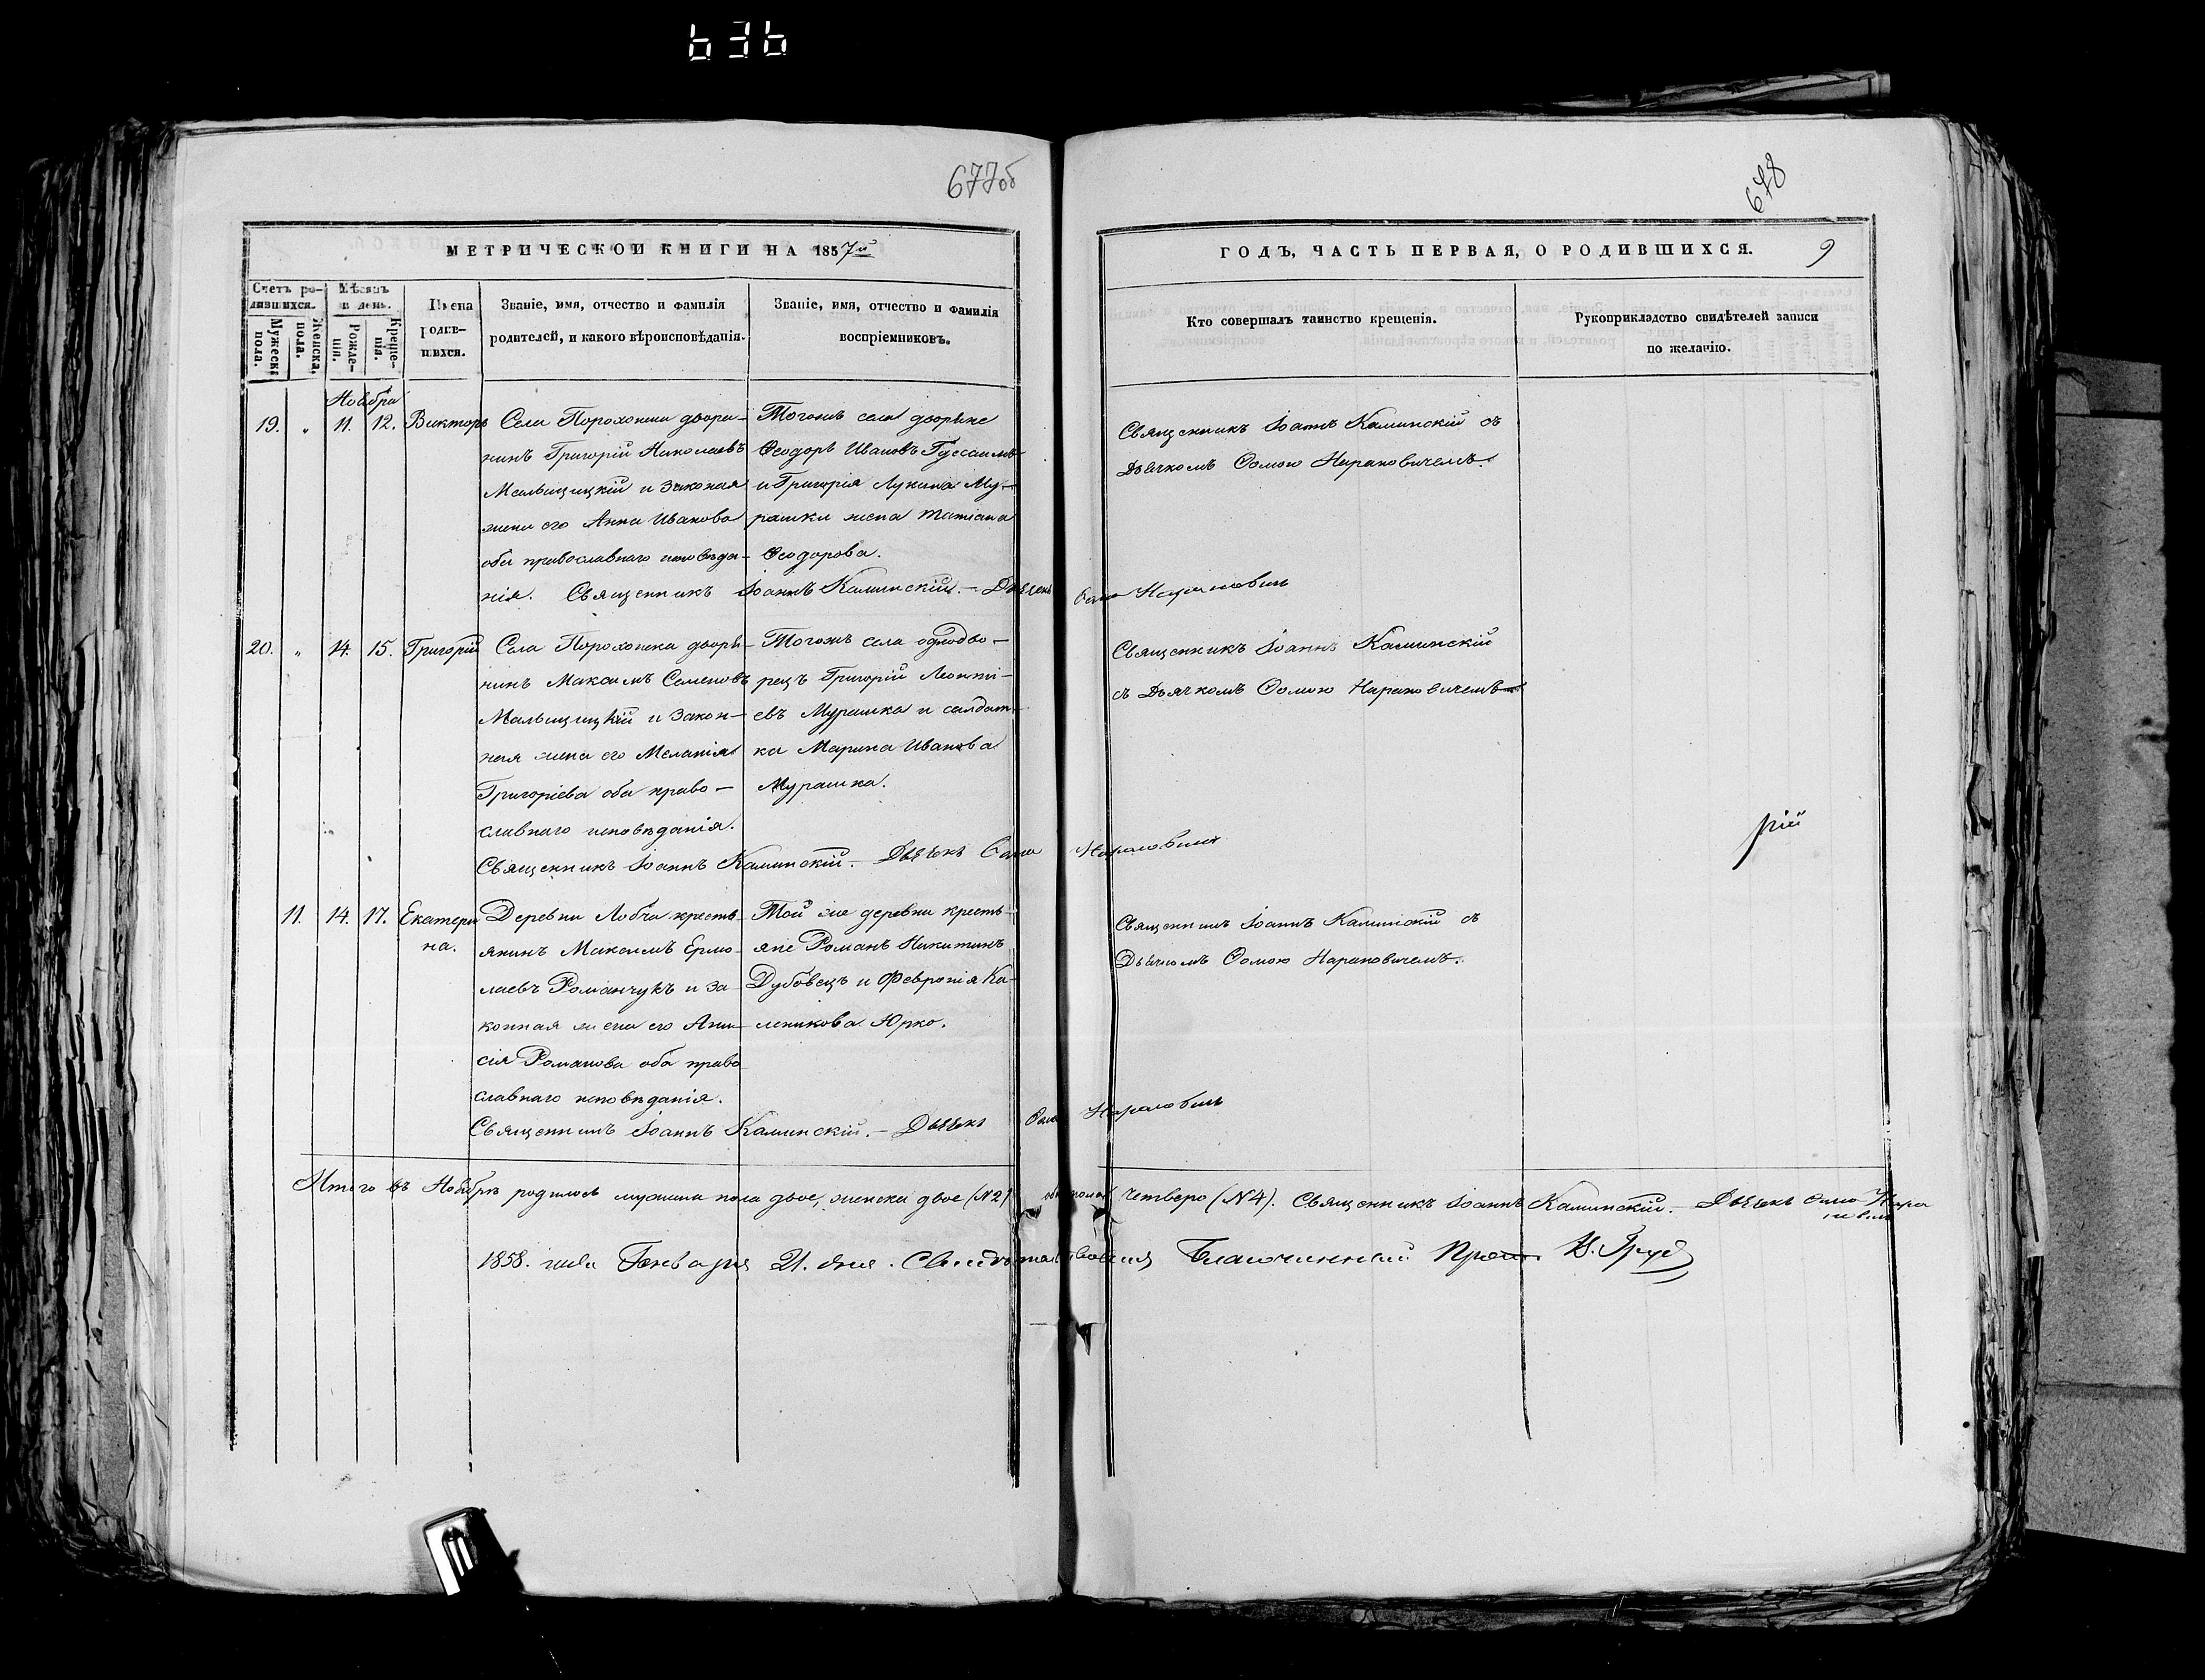 636
677об
678
МЕТРИЧЕСКОЙ КНИГИ НА 1857й
ГОДЪ, ЧАСТЬ ПЕРВАЯ, О РОДИВШИХСЯ.
9
Счетъ родившихся.
Мужеска пола.
Женска, пола.
Мѣсяцъ и день.
Рожденія.
Крещенія.
Имена родившихся.
Званіе, имя, отчество и фамилія
родителей, и какого вѣроисповѣданія.
Званіе, имя, отчество и фамилія
воспріемниковъ.
Кто совершалъ таинство крещенія.
Рукоприкладство свидѣтелей записи
по желанію.
Ноября
19. " 11. 12. Викторъ
Села Порохонска дворя-
нинъ Григорій Николаевъ
Мальщицкій и законая
жена его Анна Иванова
оба православнаго исповѣда-
нія. Священникъ Іоаннъ Калинскій. - Дьячекъ Ѳома Нарановичъ
Тогожъ села дворяне
Ѳеодоръ Ивановъ
и Григорія Лукина Му-
рашки жена Татіана
Ѳеодорова.
Священникъ Іоаннъ Калинскій съ
Дьячкомъ Ѳомою Нарановичемъ.
20. " 14. 15. Григорій
Села Порохонска дворя-
нинъ Максимъ Семеновъ
Мальщицкій и закон-
ная жена его Меланія
Григоріева оба право-
славнаго исповѣданія.
Священникъ Іоаннъ Калинскій. - Дьячекъ Ѳома Нарановичъ
Тогожъ села однодво-
рецъ Григорій Леонті-
евъ Мурашка и солдат-
ка Марина Иванова
Мурашка.
Священникъ Іоаннъ Калинскій
съ Дьячкомъ Ѳомою Нарановичемъ
рій
11. 14. 17. Екатери
на.
Деревни Лобча кресть-
янинъ Максимъ Ермо-
лаевъ Романчукъ и за-
конная жена его Ани-
сія Романова оба право
славнаго исповѣданія.
Священникъ Іоаннъ Калинскій. - Дьячекъ Ѳома Нарановичъ
Той же деревни кресть-
яне Романъ Никитинъ
Дубовецъ и Февронія Ка-
леникова Юрко.
Священникъ Іоаннъ Калинскій съ
Дьячкомъ Ѳомою Нарановичемъ.
Итого въ Ноябрѣ родилось мужеска пола двое, женска двое (№2) обоего пола четверо (№4). Священникъ Іоаннъ Калинскій. - Дьячекъ Ѳома Нара
новичъ
1858. года Генваря 21. дня. Свидѣтельствовалъ Благочинный